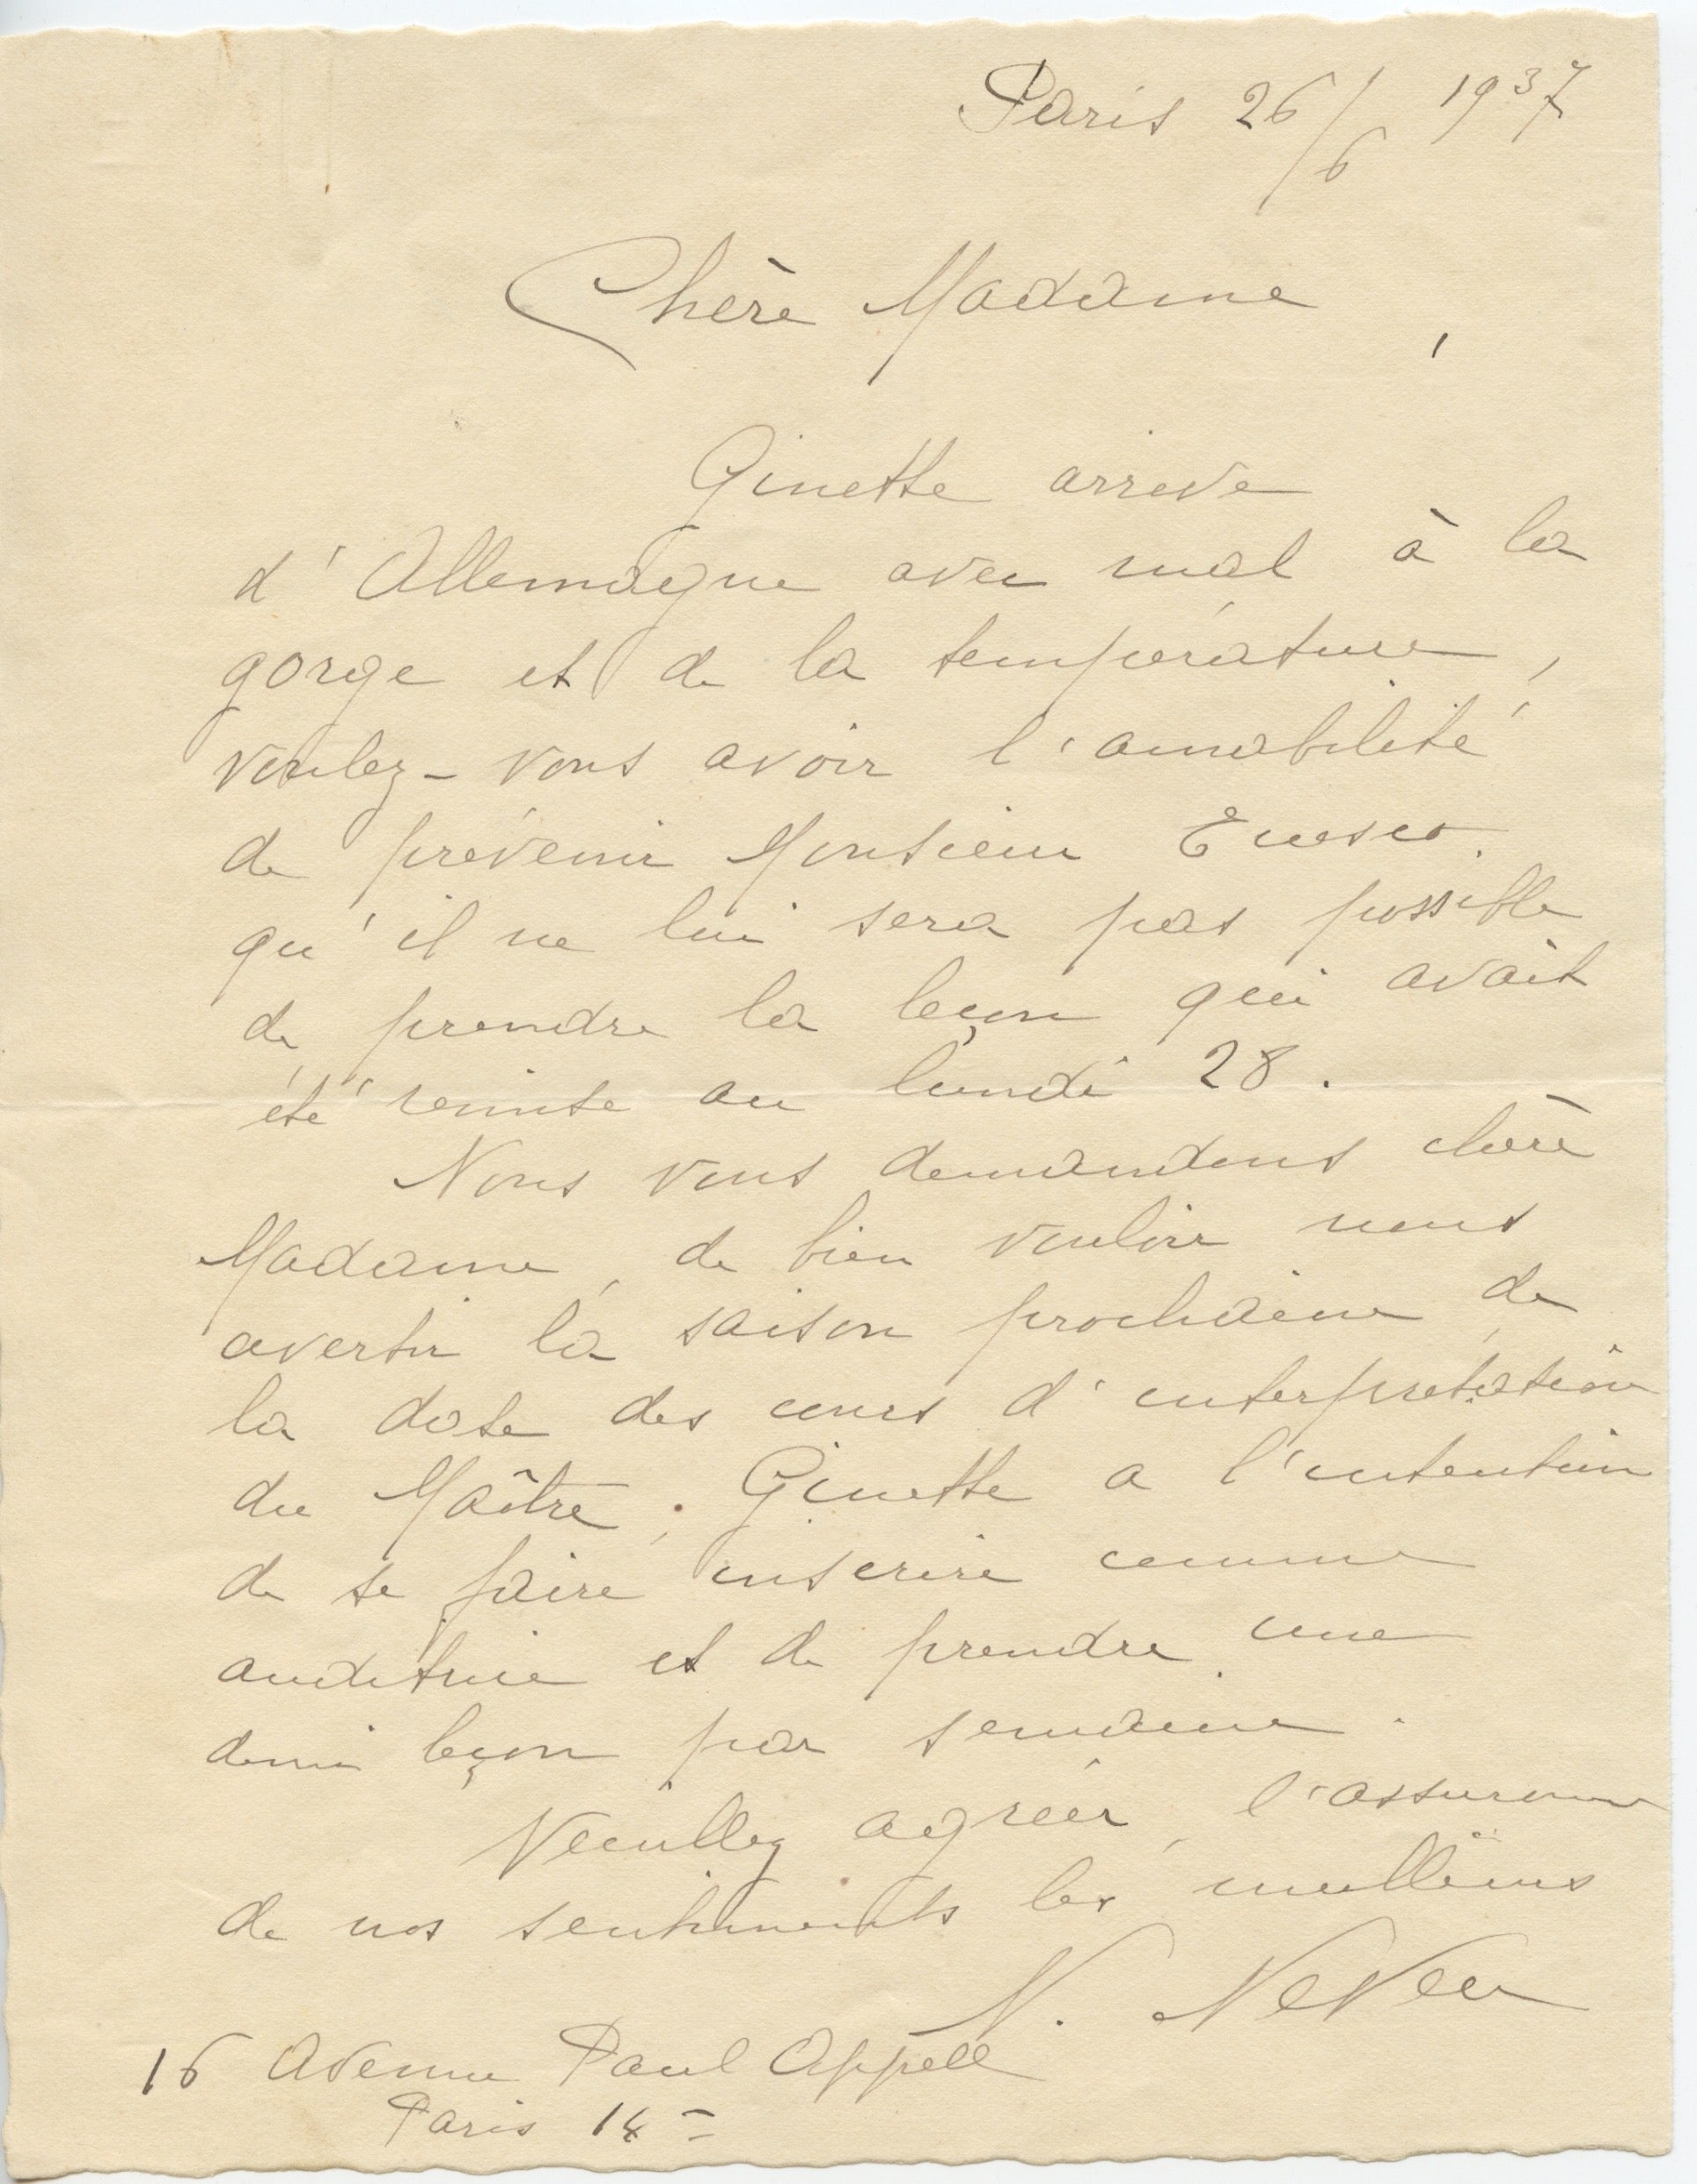 Paris 26/6 1937
Chère Madame,
Ginette arrive
d'Allemagne avec mal à la
gorge et de la température,
voulez-vous avoir l'amabilité
de prévenir Monsieur Enesco
qu'il ne lui sera pas possible
de prendre la leçon qui avait
été remise au lundi 28.
Nous vous demandons chère
Madame, de bien vouloir nous
avertir la saison prochaine, de
la date des cours d'interprétation
du Maître; Ginette a l'intention
de se faire inscrire comme
auditrice et de prendre une
demi leçon par semaine.
Veuillez agréer, l'assurance
de nos sentiments les meilleurs
N. Neveu
16 Avenue Paul Appell
Paris 14